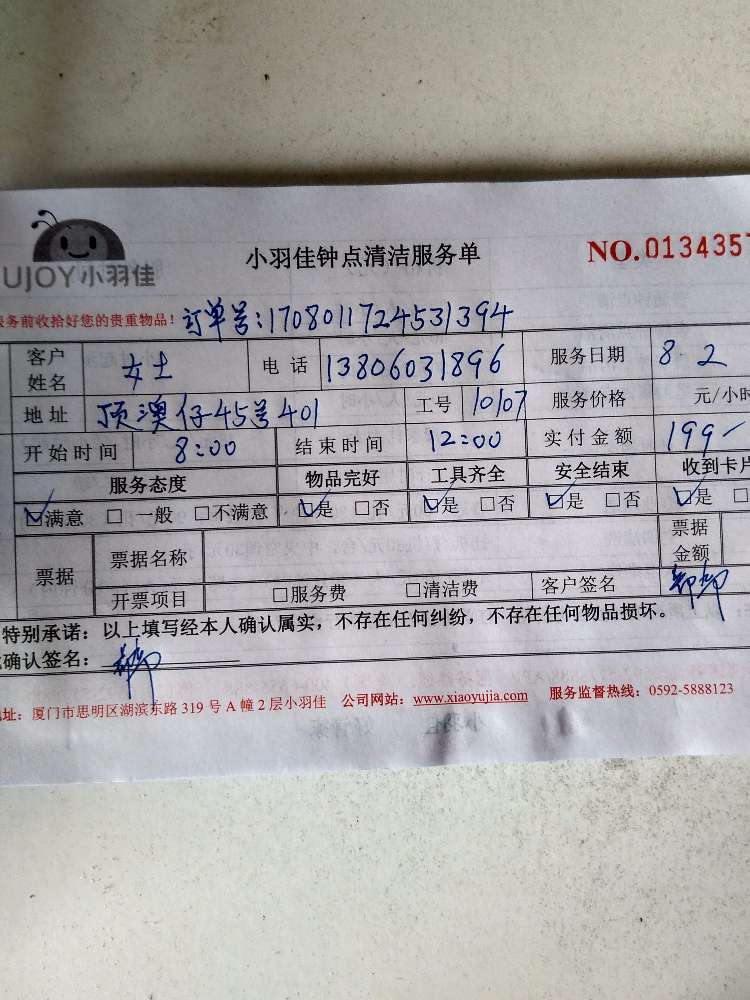 UJOY小羽佳
小羽佳钟点清洁服务单
NO.0134357
服务前收拾好您的贵重物品！ 订单号:1708011724531394
客户姓名 女士 电话 13806031896 服务日期 8.2
地址 顶澳仔45号401 工号 10107 服务价格 元/小时
开始时间 8:00 结束时间 12:00 实付金额 199-
服务态度 物品完好 工具齐全 安全结束 收到卡片
☑满意 □一般 □不满意 ☑是 □否 ☑是 □否 ☑是 □否 ☑是 □
票据 票据名称 票据金额
开票项目 □服务费 □清洁费 客户签名
特别承诺：以上填写经本人确认属实，不存在任何纠纷，不存在任何物品损坏。
确认签名：
址：厦门市思明区湖滨东路 319 号 A 幢 2 层小羽佳 公司网站：www.xiaoyujia.com 服务监督热线：0592-5888123